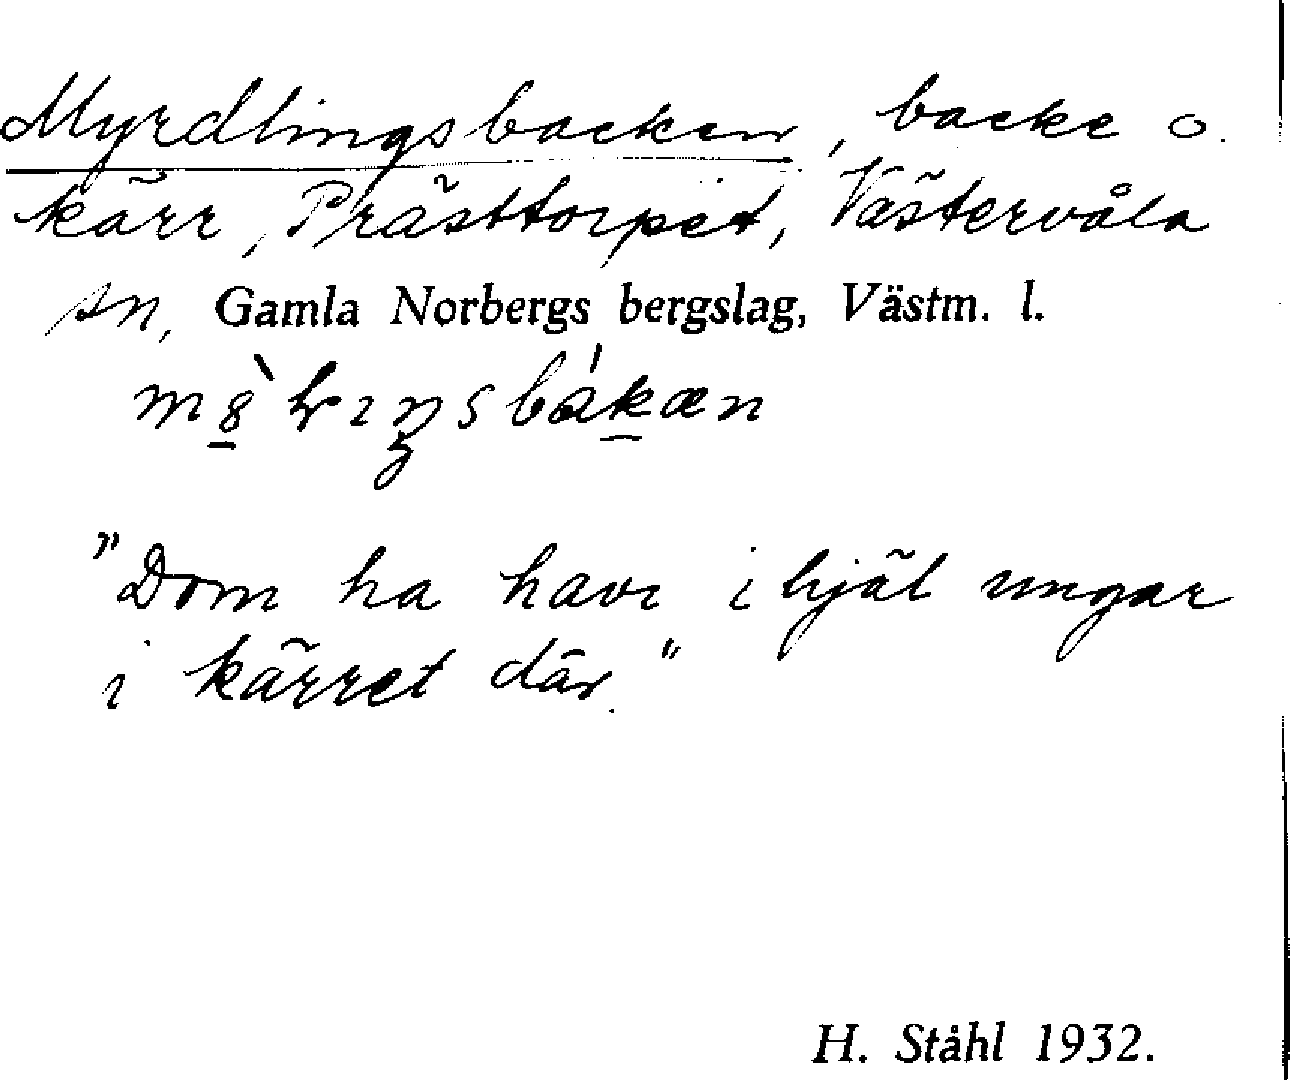 Myrdlingsbacken, backe o.
kärr, Prästtorpet, Västervåla
sn, Gamla Norbergs bergslag, Västm. l.
"Dom ha havi ihjäl ungar
i kärret där."
H. Ståhl 1932.